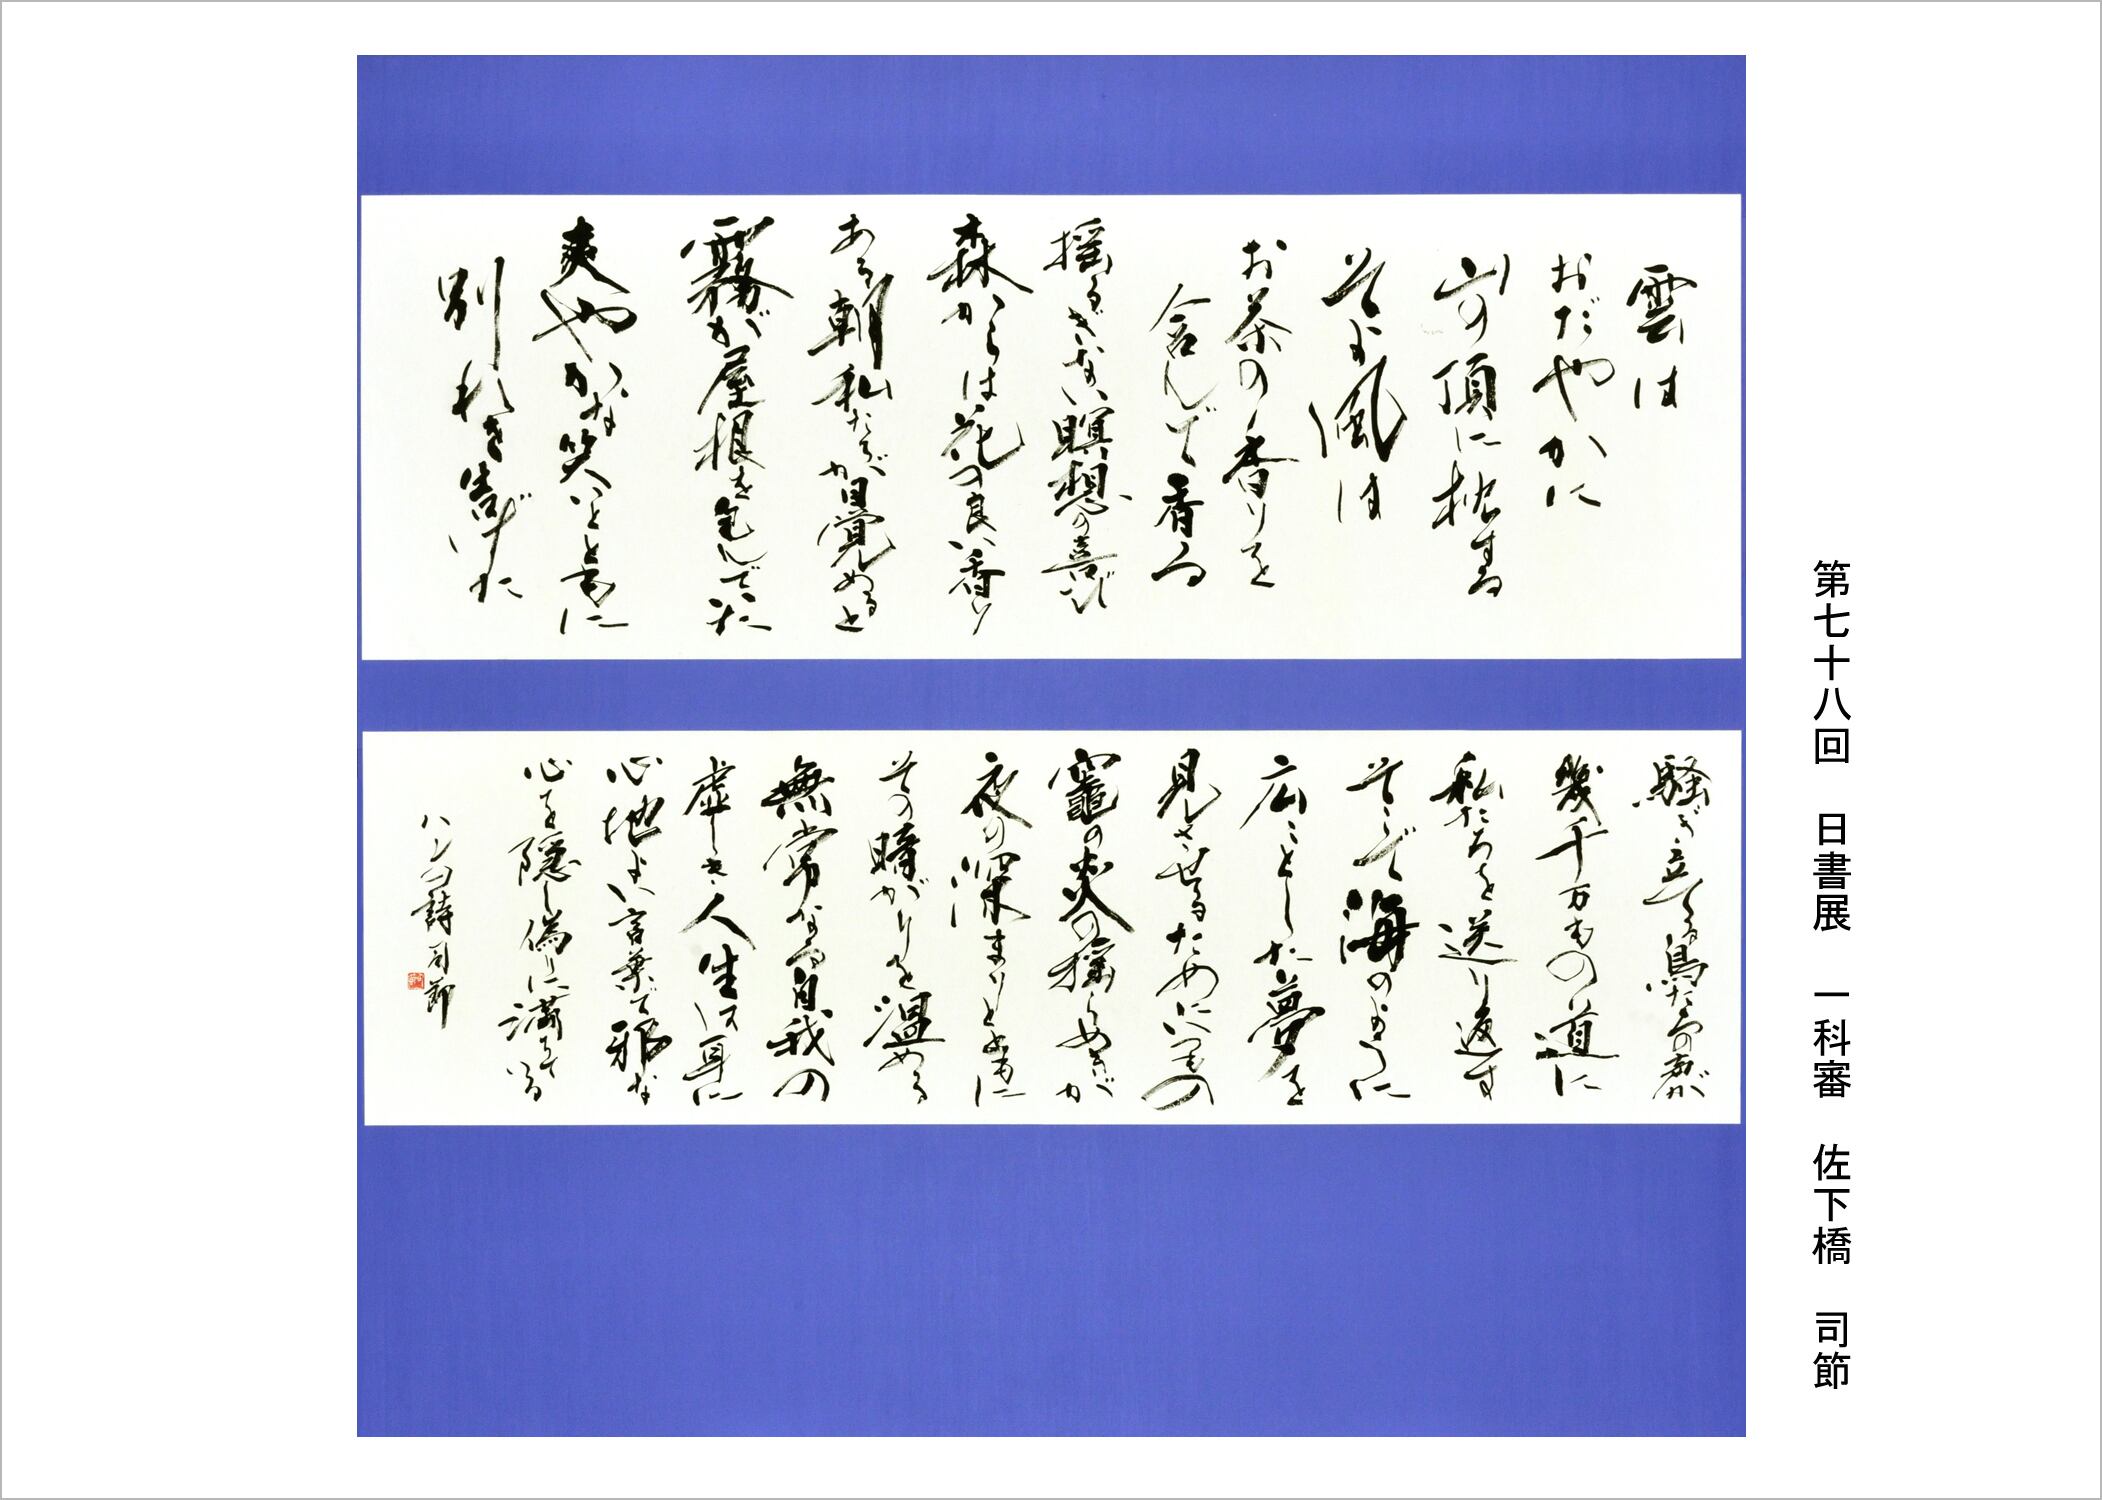 雲は
おだやかに
山の頂に枕する
そよ風は
お茶の香りを
含んで香る
揺るぎない瞑想の喜び
森からは花の良い香り
ある朝私たちが目覚めると
霧が屋根を包んでいた
爽やかな笑いとともに
別れを告げた
騒ぎ立てる鳥たちの声が
幾千万もの道に
私たちを送り返す
そこで海のように
広々とした夢を
見させるために
竈の炎の揺らめきが
夜の深まりとともに
その暗がりを温める
無常なる自我の
虚しき人生は耳に
心地よい言葉で邪な
心を隠し偽りに満ちている
ハンの詩 司節
第七十八回 日書展 一科審 佐下橋 司節